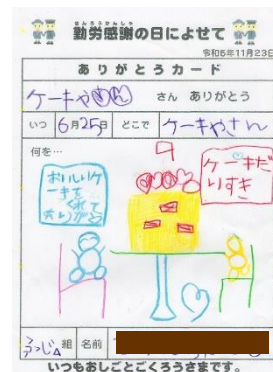 きんろうかんしゃ
勤労感謝の日によせて
令和5年11月23日
ありがとうカード
ケーキやさん さん ありがとう
いつ 6月25日 どこで ケーキやさん
何を…
おいしいケーキをつくってくれてありがとう
ケーキだいすき
ふじ組 名前
いつもおしごとごくろうさまです。